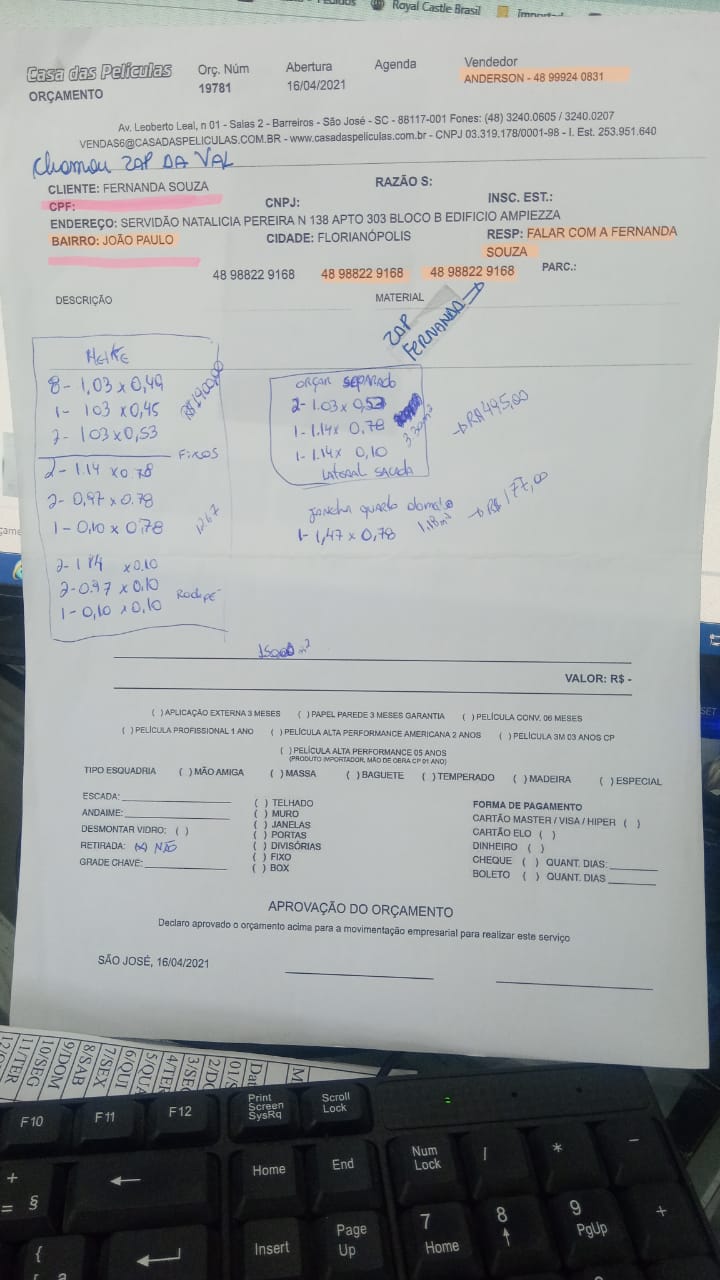 Royal Castle Brasil
Casa das Películas
ORÇAMENTO
Orç. Núm
19781
Abertura
16/04/2021
Agenda
Vendedor
ANDERSON - 48 99924 0831
Av. Leoberto Leal, n 01 - Salas 2 - Barreiros - São José - SC - 88117-001 Fones: (48) 3240.0605 / 3240.0207
VENDAS6@CASADASPELICULAS.COM.BR - www.casadaspeliculas.com.br - CNPJ 03.319.178/0001-98 - I. Est. 253.951.640
Chamou ZAP DA VAL
CLIENTE: FERNANDA SOUZA
RAZÃO S:
CPF:
CNPJ:
INSC. EST.:
ENDEREÇO: SERVIDÃO NATALICIA PEREIRA N 138 APTO 303 BLOCO B EDIFICIO AMPIEZZA
BAIRRO: JOÃO PAULO
CIDADE: FLORIANÓPOLIS
RESP: FALAR COM A FERNANDA
SOUZA
48 98822 9168 48 98822 9168 48 98822 9168 PARC.:
DESCRIÇÃO
MATERIAL
ZAP
FERNANDO
8 - 1,03 x 0,49
1 - 103 x 0,45
2 - 103 x 0,53
R$ 1900,00
FIXOS
2 - 1.14 x 0.78
2 - 0,97 x 0.78
1 - 0,10 x 0,78
2 - 1.14 x 0.10
2 - 0.97 x 0.10
1 - 0,10 x 0,10
Rodapé
orçar SEPARADO
2 - 1.03 x 0,53
1 - 1.14 x 0,78
1 - 1.14 x 0,10
LATERAL SACADA
3.30m²
R$ 495,00
Janela quarto
1 - 1,47 x 0,78
1.18m²
R$ 177,00
VALOR: R$ -
( ) APLICAÇÃO EXTERNA 3 MESES ( ) PAPEL PAREDE 3 MESES GARANTIA ( ) PELÍCULA CONV. 06 MESES
( ) PELÍCULA PROFISSIONAL 1 ANO ( ) PELÍCULA ALTA PERFORMANCE AMERICANA 2 ANOS ( ) PELÍCULA 3M 03 ANOS CP
( ) PELÍCULA ALTA PERFORMANCE 05 ANOS
(PRODUTO IMPORTADOR, MÃO DE OBRA CP 01 ANO)
TIPO ESQUADRIA ( ) MÃO AMIGA ( ) MASSA ( ) BAGUETE ( ) TEMPERADO ( ) MADEIRA ( ) ESPECIAL
ESCADA:
ANDAIME:
DESMONTAR VIDRO: ( )
RETIRADA: (x) NÃO
GRADE CHAVE:
( ) TELHADO
( ) MURO
( ) JANELAS
( ) PORTAS
( ) DIVISÓRIAS
( ) FIXO
( ) BOX
FORMA DE PAGAMENTO
CARTÃO MASTER / VISA / HIPER ( )
CARTÃO ELO ( )
DINHEIRO ( )
CHEQUE ( ) QUANT. DIAS:
BOLETO ( ) QUANT. DIAS
APROVAÇÃO DO ORÇAMENTO
Declaro aprovado o orçamento acima para a movimentação empresarial para realizar este serviço
SÃO JOSÉ, 16/04/2021
11/TER
10/SEG
9/DOM
8/SAB
7/SEX
6/QUI
5/QUA
4/TER
3/SEG
2/DO
01/S
Dat
F10
F11
F12
Print
Screen
SysRq
Scroll
Lock
Home
End
Num
Lock
/
*
-
+
= §
7
Home
8
9
PgUp
+
{
Insert
Page
Up